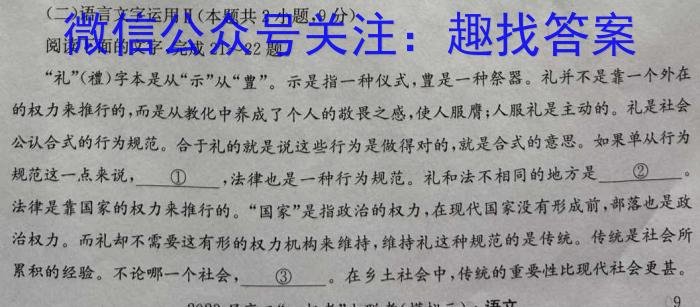 (二)语言文字运用Ⅱ(本题共2小题,9分)
微信公众号关注：趣找答案
阅读下面的文字,完成21~22题。
“礼”(禮)字本是从“示”从“豊”。示是指一种仪式,豊是一种祭器。礼并不是靠一个外在
的权力来推行的,而是从教化中养成了个人的敬畏之感,使人服膺;人服礼是主动的。礼是社会
公认合式的行为规范。合于礼的就是说这些行为是做得对的,就是合式的意思。如果单从行为
规范这一点来说,①,法律也是一种行为规范。礼和法不相同的地方是②。
法律是靠国家的权力来推行的。“国家”是指政治的权力,在现代国家没有形成前,部落也是政
治权力。而礼却不需要这有形的权力机构来维持,维持礼这种规范的是传统。传统是社会所
累积的经验。不论哪一个社会,③。在乡土社会中,传统的重要性比现代社会更甚。
语文 9